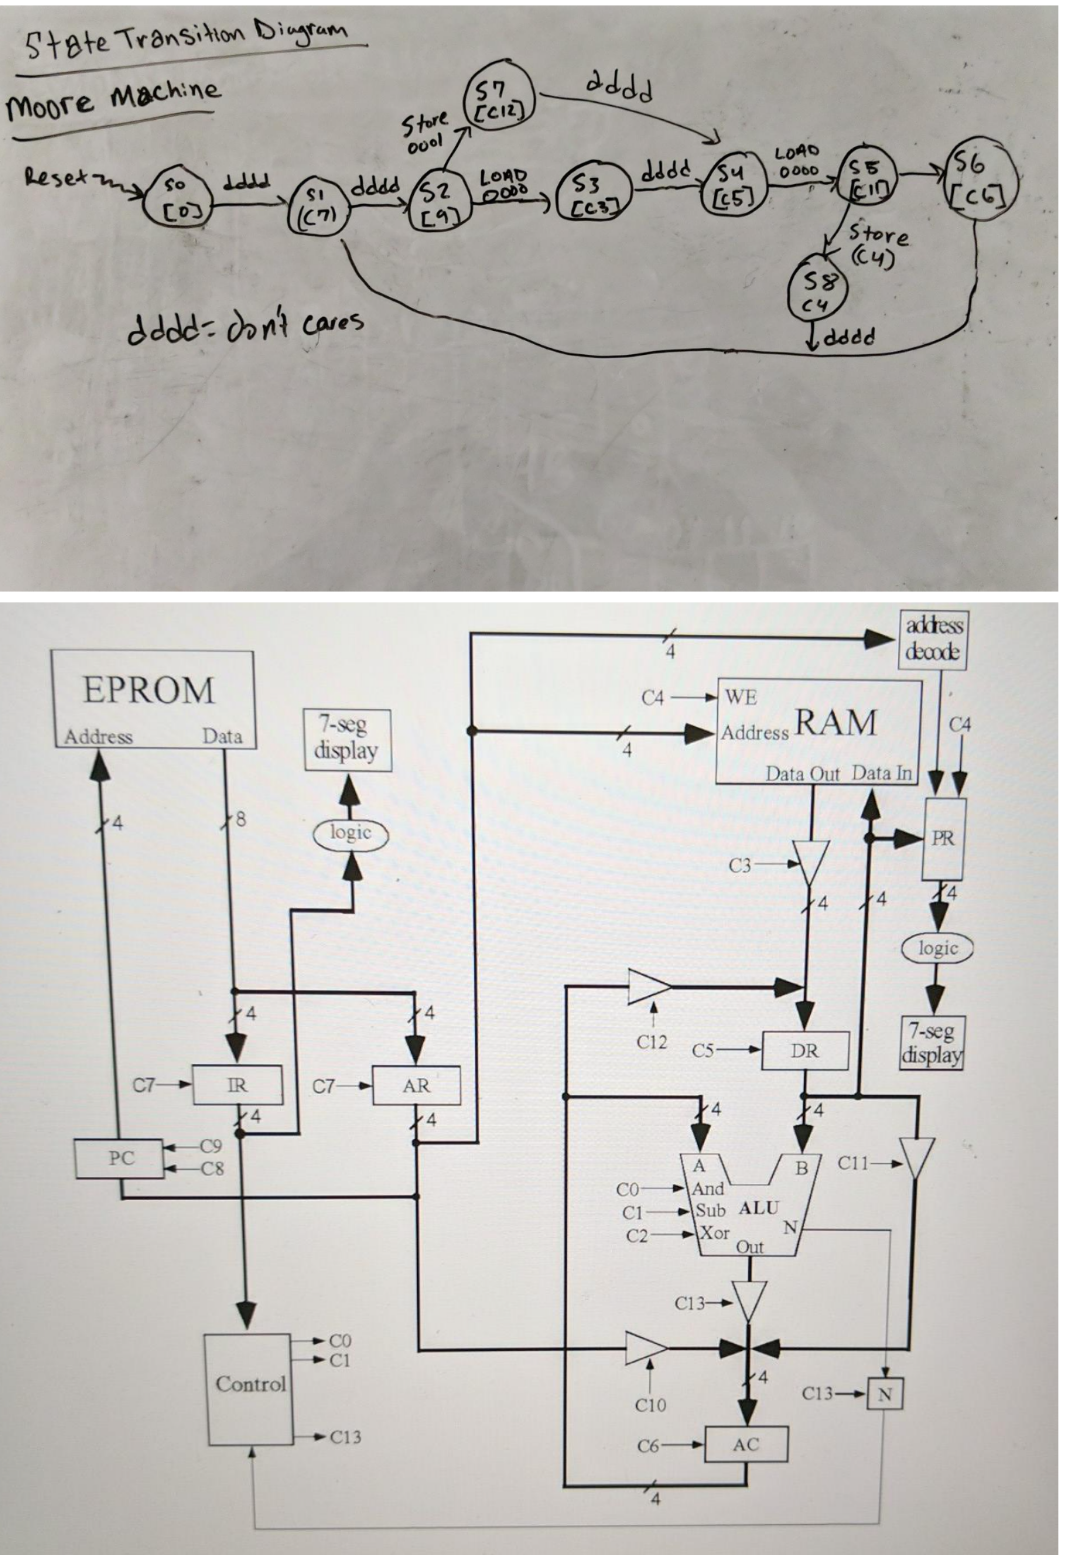 State Transition Diagram
Moore Machine
S7
[C12]
dddd
Store
0001
Reset
S0
[0]
dddd
S1
(C7)
dddd
S2
[9]
LOAD
0000
S3
[C3]
dddd
S4
[C5]
LOAD
0000
S5
[C11]
S6
[C6]
Store
(C4)
S8
C4
dddd
dddd = don't cares
address
decode
4
EPROM
Address Data
7-seg
display
C4
WE
RAM
Address
4
C4
Data Out Data In
4
8
logic
C3
PR
4
4
4
logic
4
4
C12
C5
DR
7-seg
display
C7
IR
C7
AR
4
4
4
4
PC
C9
C8
A
B
C11
C0
And
C1
Sub
ALU
C2
Xor
N
Out
C13
Control
C0
C1
C13
C10
4
C13
N
C6
AC
4